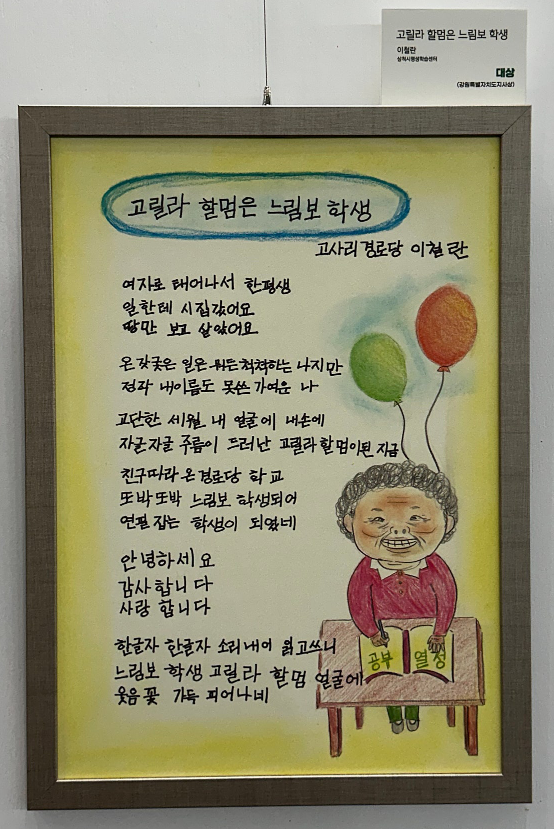 고릴라 할멈은 느림보 학생
이철란
삼척시평생학습센터
대상
(강원특별자치도지사상)
고릴라 할멈은 느림보 학생
고사리경로당 이철란
여자로 태어나서 한평생
일한테 시집갔어요
땅만 보고 살았어요
온갖궂은 일은 뭐든척척하는 나지만
정작 내이름도 못쓴 가여운 나
고단한 세월 내 얼굴에 내손에
자글자글 주름이 드러난 고릴라할멈이된 지금
친구따라온경로당 학교
또박또박 느림보 학생되어
연필 잡는 학생이 되었네
안녕하세요
감사합니다
사랑 합니다
한글자 한글자 소리내어 읽고쓰니
느림보 학생 고릴라 할멈 얼굴에
웃음꽃 가득 피어나네
공부 열정